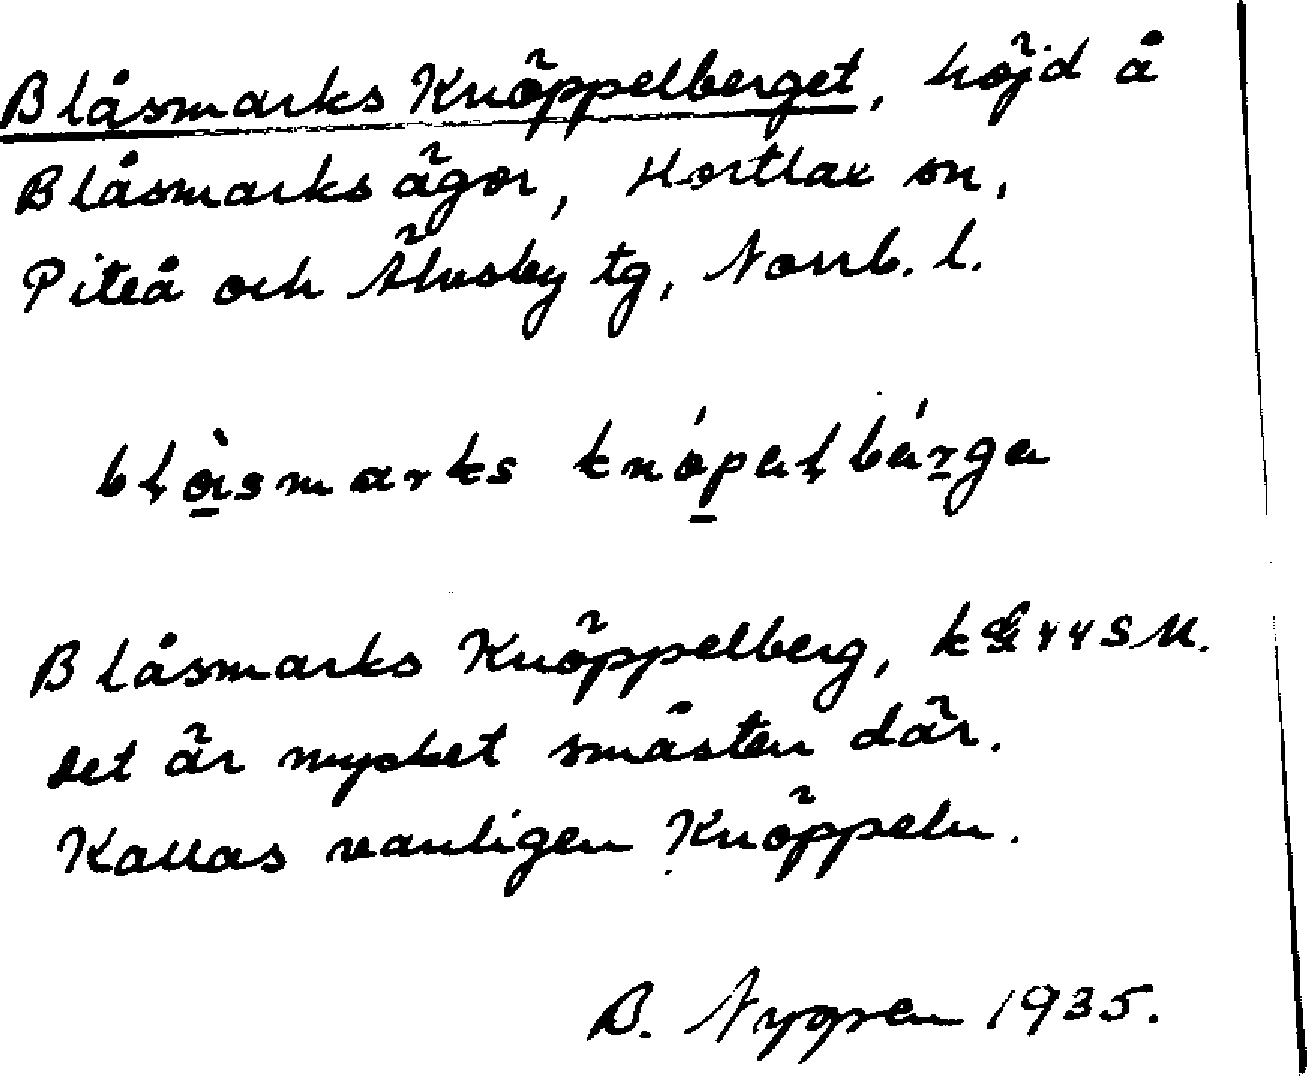 Blåsmarks Knöppelberget, höjd å
Blåsmarks ägor, Hortlax sn,
Piteå och Älvsby tg, Norrb. l.
blåismarks knöpelbärge
Blåsmarks Knöppelberg,
det är mycket småsten där.
Kallas vanligen Knöppeln.
B. Nygren 1935.